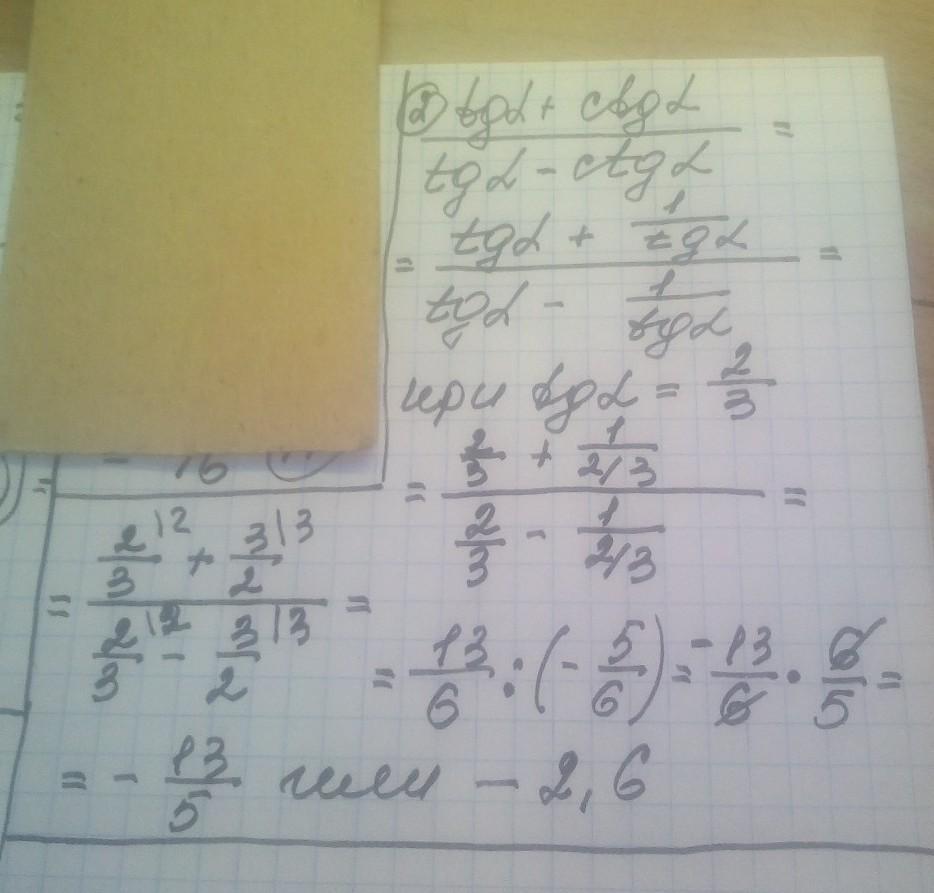 ② tgα + ctgα / tgα - ctgα =
= tgα + 1/tgα / tgα - 1/tgα =
при tgα = 2/3
= 2/3 + 1/2/3 / 2/3 - 1/2/3 =
= 2/3\2 + 3/2\3 / 2/3\2 - 3/2\3 =
= 13/6 : (- 5/6) = -13/6 · 6/5 =
= - 13/5 или - 2,6